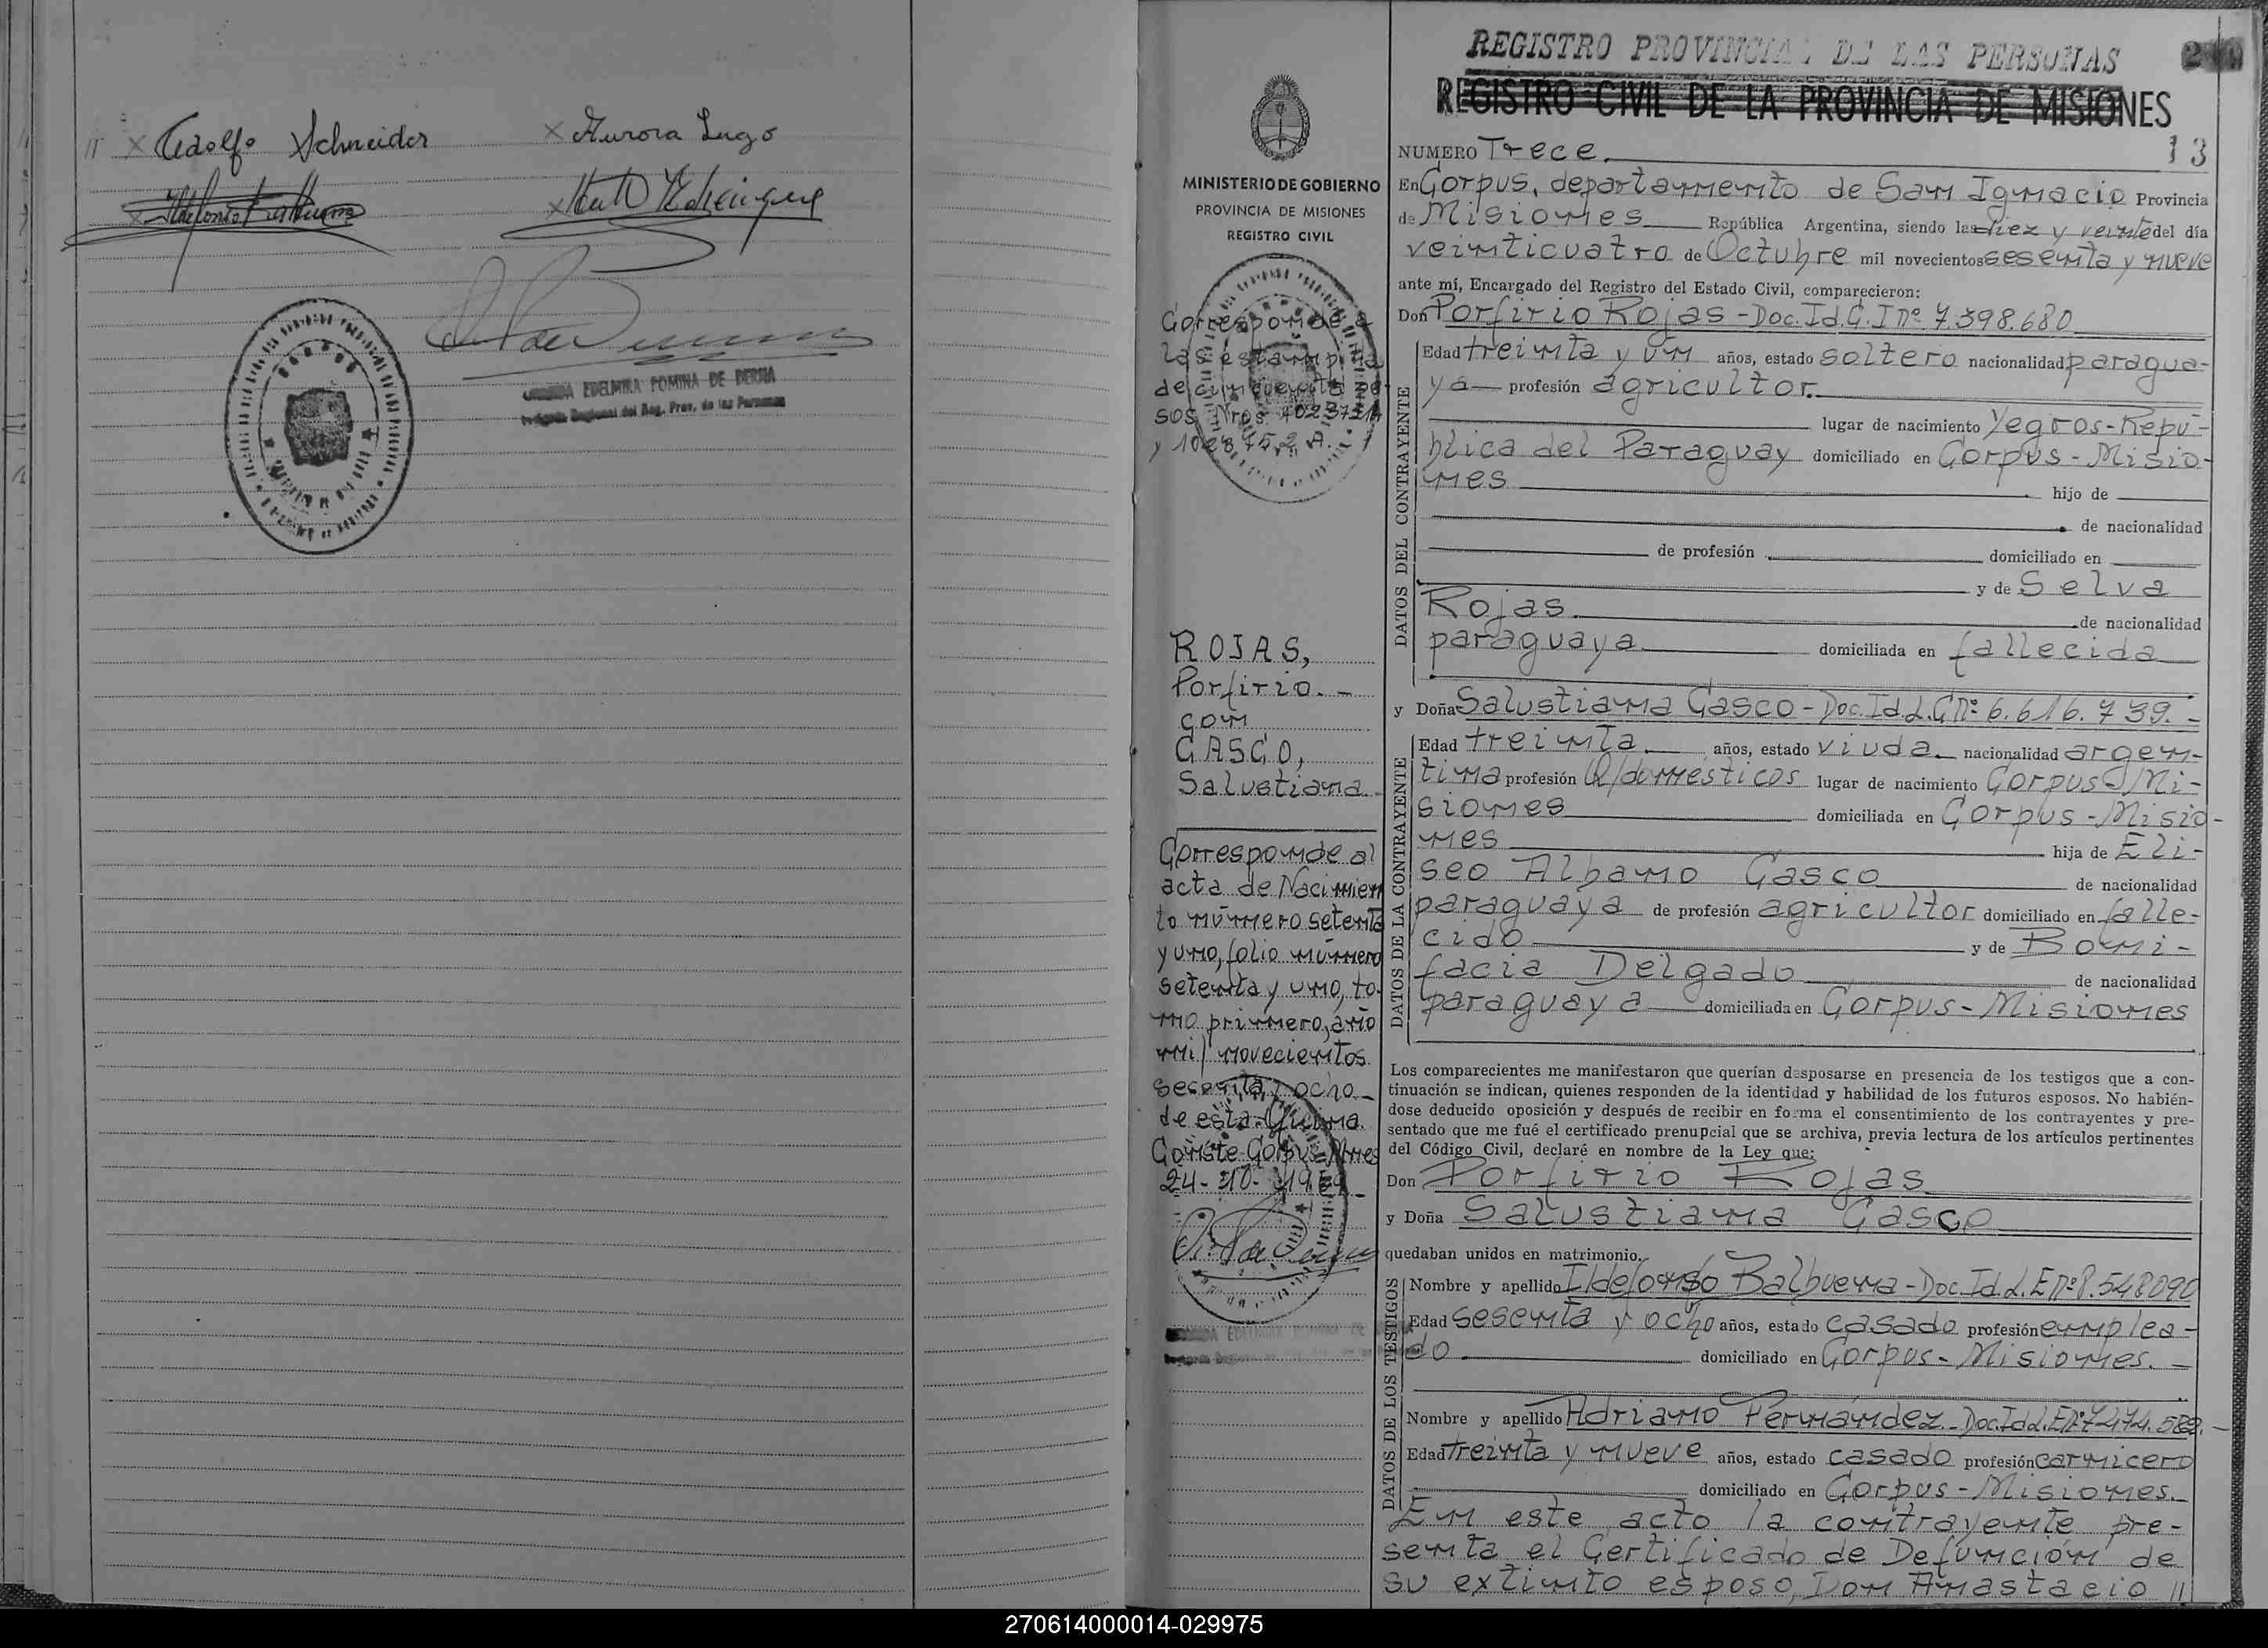 Adolfo Schneider
Aurora Lugo
EDELMIRA POMINA DE BERNA
Reg. Prov. de las Personas
MINISTERIO DE GOBIERNO
PROVINCIA DE MISIONES
REGISTRO CIVIL
Corresponde a
las estampillas
de cincuenta pe
sos Nros
ROJAS,
Porfirio. -
con
GASCO,
Salustiana.-
Corresponde al
acta de Nacimien
to número setenta
y uno, folio número
setenta y uno, to-
mo primero, año
mil novecientos
sesenta y ocho
de esta Oficina.
Conste-Corpus-Mnes
24-10-1969
REGISTRO PROVINCIAL DE LAS PERSONAS
REGISTRO CIVIL DE LA PROVINCIA DE MISIONES
NUMERO Trece. 13
En Corpus, departamento de San Ignacio Provincia
de Misiones República Argentina, siendo las diez y veinte del día
veinticuatro de Octubre mil novecientos sesenta y nueve
ante mí, Encargado del Registro del Estado Civil, comparecieron:
Don Porfirio Rojas - Doc. Id. C. I nº 7.398.680
DATOS DEL CONTRAYENTE
Edad treinta y un años, estado soltero nacionalidad paragua-
ya profesión agricultor.
lugar de nacimiento Yegros-Repú-
blica del Paraguay domiciliado en Corpus-Misio-
nes hijo de
de nacionalidad
de profesión domiciliado en
y de Selva
Rojas. de nacionalidad
paraguaya domiciliada en fallecida
y Doña Salustiana Gasco - Doc. Id. L. C nº 6.616.739. -
DATOS DE LA CONTRAYENTE
Edad treinta. años, estado viuda. nacionalidad argen-
tina profesión Q/domésticos lugar de nacimiento Corpus-Mi-
siones domiciliada en Corpus-Misio-
nes hija de Eli-
seo Albano Gasco de nacionalidad
paraguaya de profesión agricultor domiciliado en falle-
cido y de Boni-
facia Delgado de nacionalidad
paraguaya domiciliada en Corpus-Misiones
Los comparecientes me manifestaron que querían desposarse en presencia de los testigos que a con-
tinuación se indican, quienes responden de la identidad y habilidad de los futuros esposos. No habién-
dose deducido oposición y después de recibir en forma el consentimiento de los contrayentes y pre-
sentado que me fué el certificado prenupcial que se archiva, previa lectura de los artículos pertinentes
del Código Civil, declaré en nombre de la Ley que:
Don Porfirio Rojas
y Doña Salustiana Gasco
quedaban unidos en matrimonio.
DATOS DE LOS TESTIGOS
Nombre y apellido Ildefonso Balbuena - Doc. Id. L. E nº 8.548090
Edad sesenta y ocho años, estado casado profesión emplea-
do domiciliado en Corpus-Misiones. -
Nombre y apellido Adriano Fernández - Doc. Id L. E nº 7474.582. -
Edad treinta y nueve años, estado casado profesión carnicero
domiciliado en Corpus-Misiones.
En este acto la contrayente pre-
senta el Certificado de Defunción de
su extinto esposo, Don Anastacio //
270614000014-029975